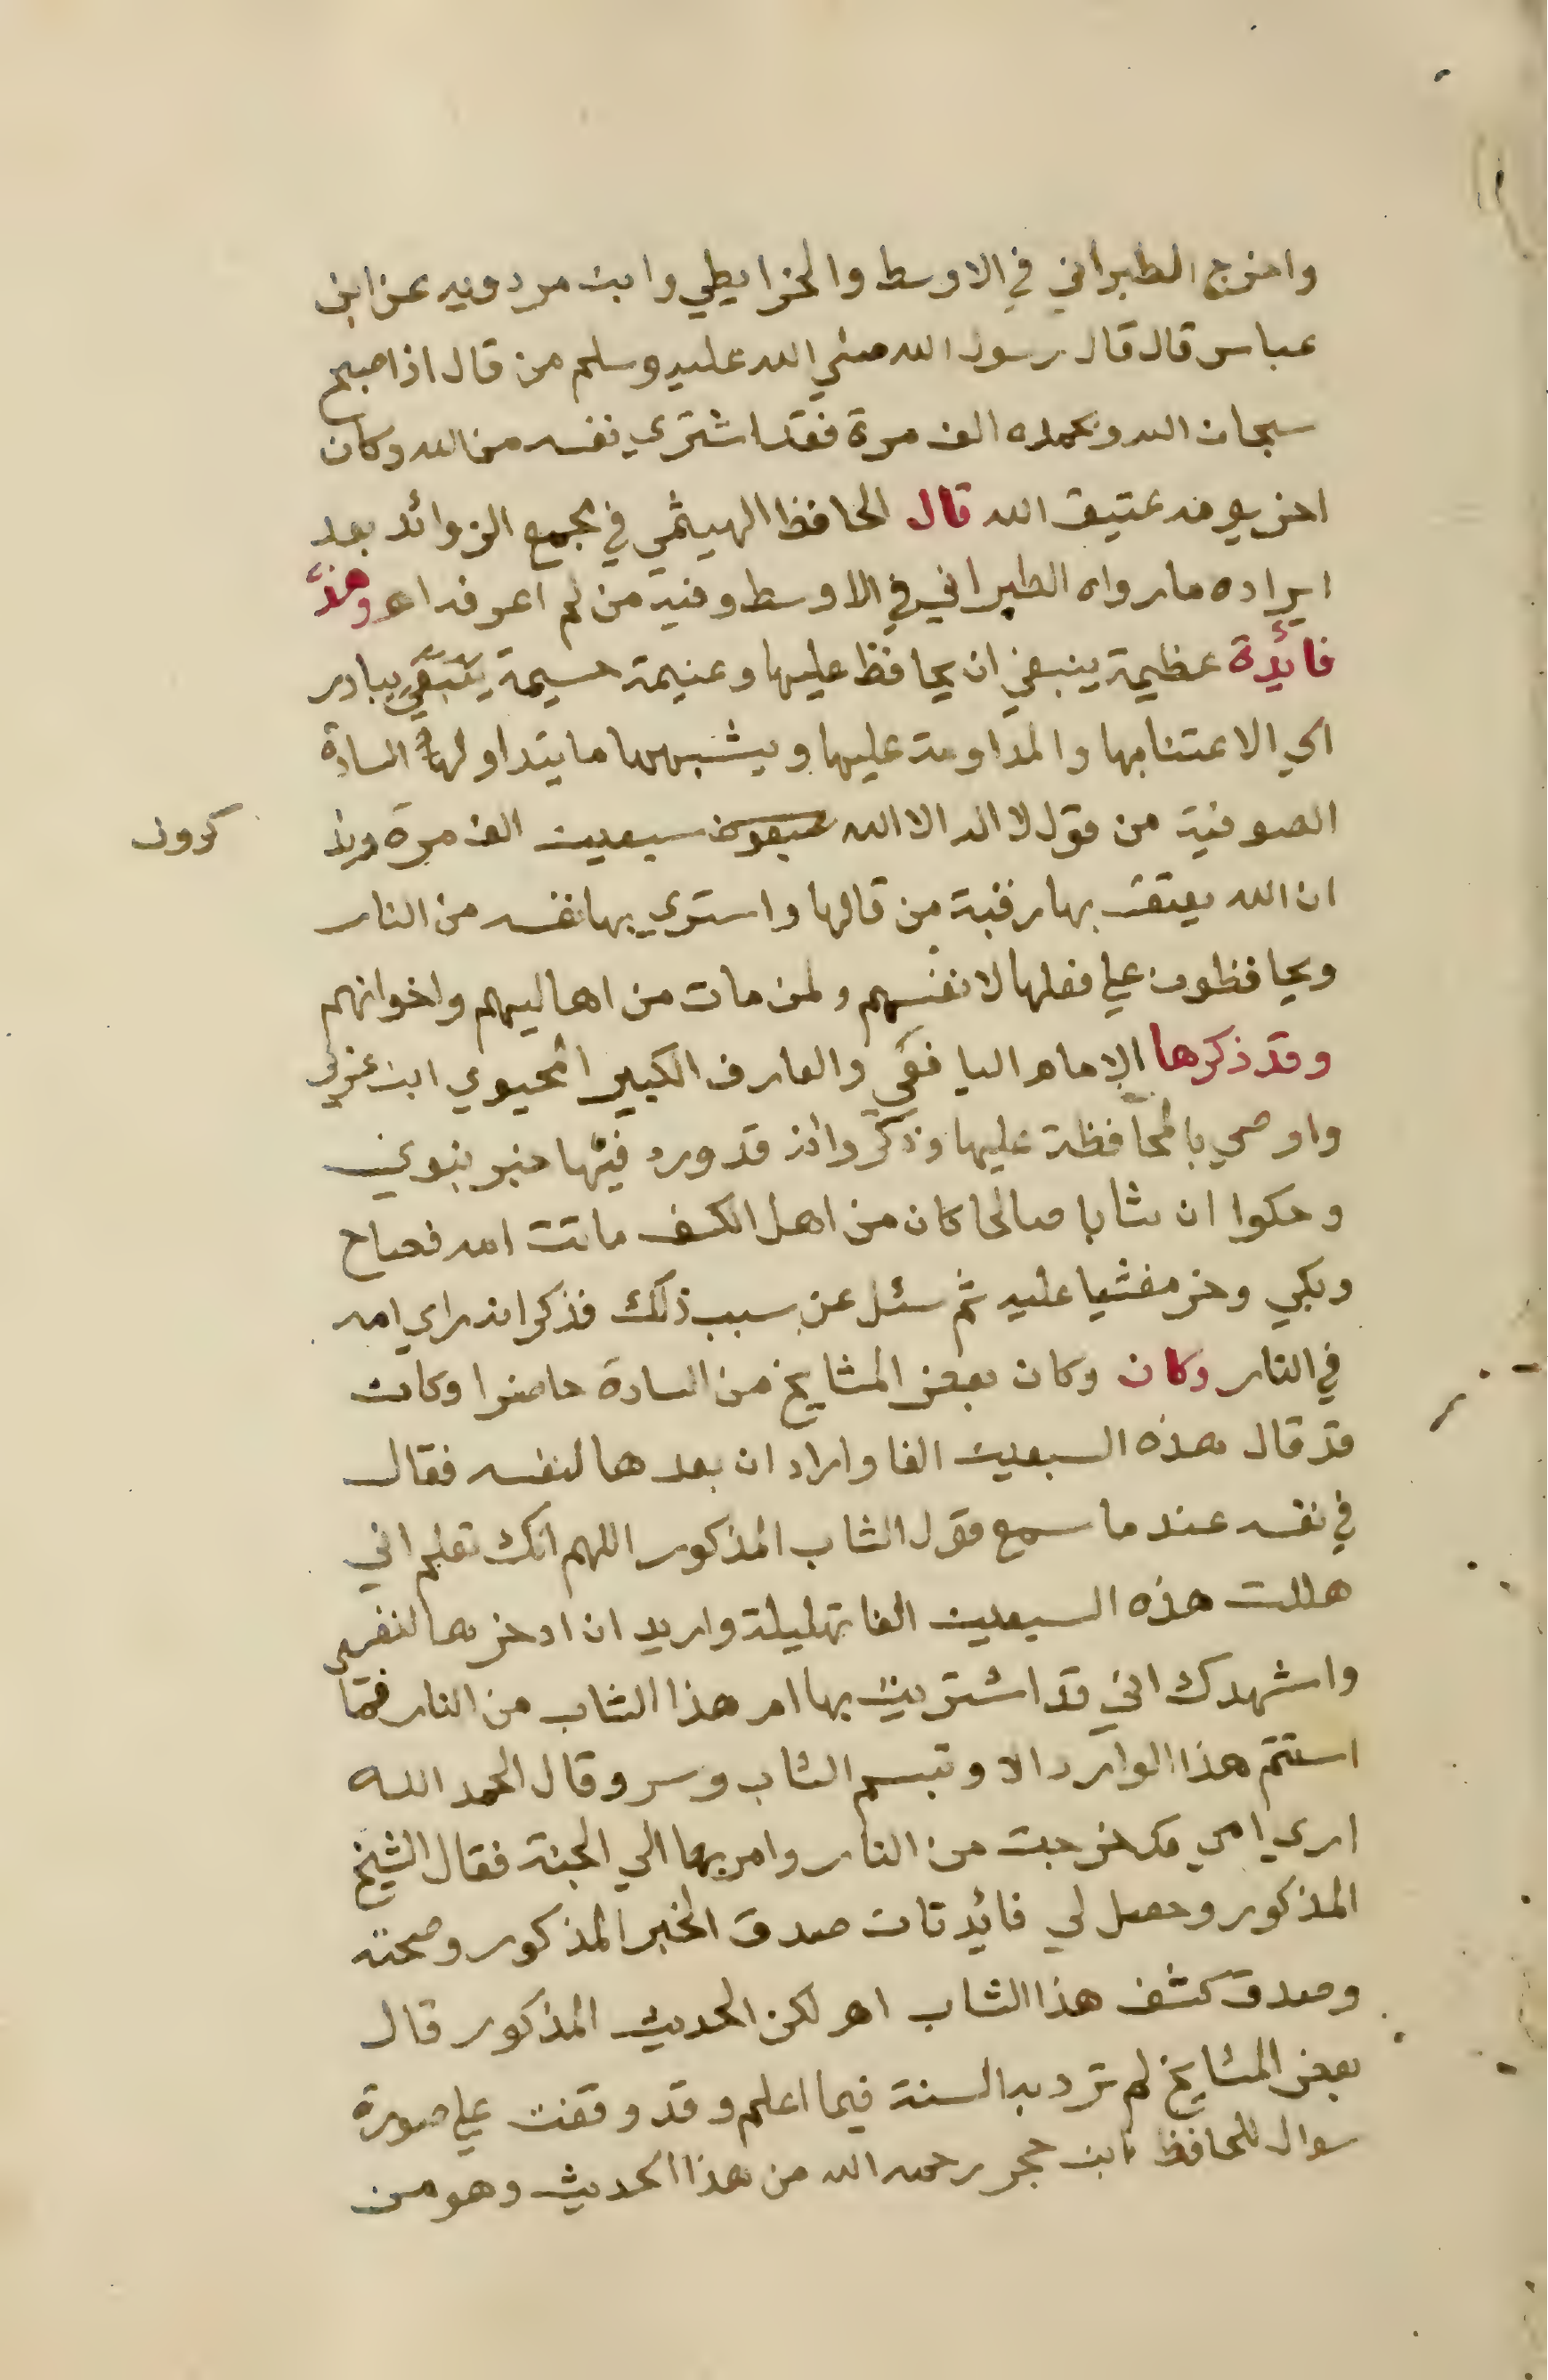 واخرج الطبراني في الاوسط والخرايطي وابن مردويه عن ابن
عباس قال قال رسول الله صلي الله عليه وسلم من قال اذا صبح
سبحان الله وبحمده الف مرة فقد اشتري نفسه من الله وكان
اخر يومه عتيق الله قال الحافظ الهيثمي في مجمع الزوائد بعد
ايراده مارواه الطبراني في الاوسط وفيه من لم اعرفه اه وهذه
فايدة عظيمة ينبغي ان يحافظ عليها وغنيمة جسيمة ينبغي يبادر
الي الاعتنا بها والمداومة عليها ويشبهها ما يتداولها السادة
الصوفية من قول لا اله الا الله سبعون سبعين الف مرة ويذ
كرون
ان الله يعتق بها رقبة من قالها واستري بها نفسه من النار
ويحافظون علي فعلها لانفسهم ولمن مات من اهاليهم واخوانهم
وقد ذكرها الامام اليافعي والعارف الكبير المحيوي ابن عربي
واوصي بالمحافظة عليها وذكروا انه قد ورد فيها خبر نبوي
وحكوا ان شابا صالحا كان من اهل الكشف ماتت امه فصاح
وبكي وخر مغشيا عليه ثم سئل عن سبب ذلك فذكر انه راي امه
في النار وكان وكان بعض المشايخ من السادة حاضرا وكان
قد قال هذه السبعين الفا واراد ان يعدها لنفسه فقال
في نفسه عندما سمع قول الشاب المذكور اللهم انك تعلم اني
هللت هذه السبعين الفا تهليلة واريد ان ادخرها لنفسي
واشهدك اني قد اشتريت بها ام هذا الشاب من النار فما
استتم هذا الوارد الا وتبسم الشاب وسر وقال الحمد الله
اري امي قد خرجت من النار وامر بها الي الجنة فقال الشيخ
المذكور وحصل لي فائدتان صدق الخبر المذكور وصحته
وصدق كشف هذا الشاب اه لكن الحديث المذكور قال
بعض المشايخ لم ترد به السنة فيما اعلم وقد وقفت علي صورة
سوال للحافظ ابن حجر رحمه الله من هذا الحديث وهو من